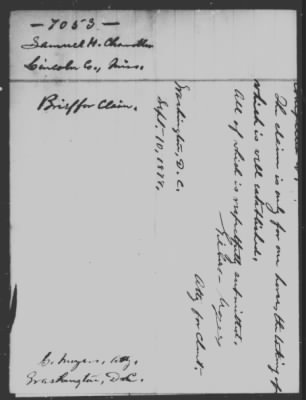 — 7053 —
Samuel H. Chandler
Lincoln Co., Miss.
Brief for Claim.
C. Meyers, Atty.
Washington, D.C.
The claim is only for one horse, the taking of
which is well established.
All of which is respectfully submitted,
Atty for Clmt.
Washington, D.C.
Sept. 10, 1888.